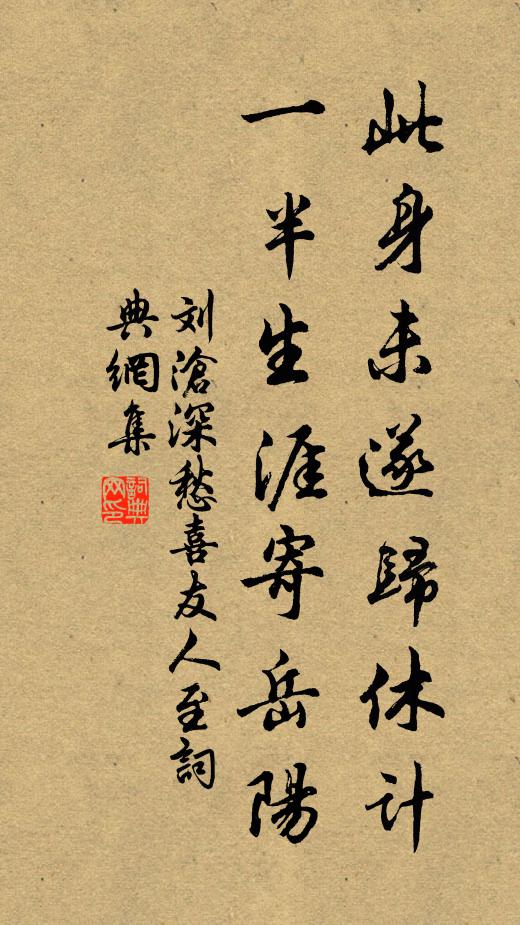 此身未遂歸休計
一半生涯寄岳陽
刘滄深愁喜友人至詞
典網集
詞典網印